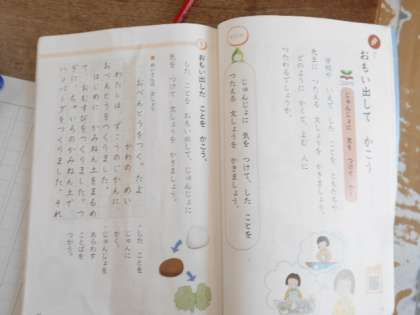 おもい出して かこう
じゅんじょに 気を つけて
学校や いえで した ことを ともだちや
先生に つたえる 文しょうを かきましょう。
どのように かくと、よむ 人に
つたわるでしょうか。
じゅんじょに 気を つけて、した ことを
つたえる 文しょうを かきましょう。
おもい出した ことを かこう。
した ことを おもい出して、じゅんじょに
気を つけて 文しょうを かきましょう。
おべんとうを つくったよ
かわの めい
わたしは、ずこうのじかんに
おべんとうをつくりました。
はじめに、かみねん土をまるめ
て、おむすびをつくりました。つ
ぎに、ちゃいろのかみねん土で
ハンバーグをつくりました。それ
した ことを
じゅんに
かく。
じゅんじょを
あらわす
ことばを
つかう。